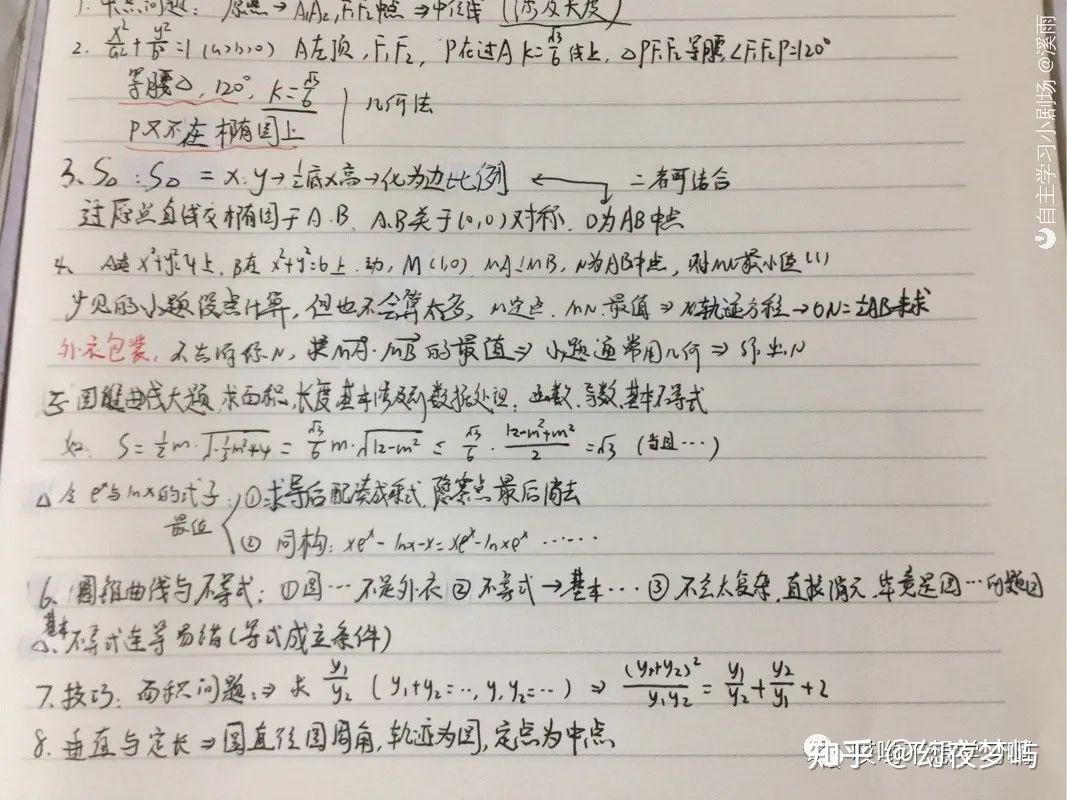 1. 中点问题: 原点→A₁A₂,F₁F₂中点⇒中位线 (涉及长度)
2. x²/a²+y²/b²=1 (a>b>0) A左顶,F₁F₂, P在过A k=√3/6 线上,△PF₁F₂等腰∠F₁F₂P=120°
等腰△,120°,k=√3/6
几何法
P又不在椭圆上
3、S△:S△=x:y→½底×高→化为边比例 二者可结合
过原点直线交椭圆于A.B. A.B关于(0,0)对称. O为AB中点
4. A在x²+y²=4上,B在x²+y²=6上.动,M(1,0) MA⊥MB,N为AB中点,
少见的小题设点计算,但也不会算太多, M定点. MN.最值⇒N轨迹方程→ON=½AB来求
外衣包装, 不告诉你N,求MA·MB的最值⇒小题通常用几何⇒作出N
5. 圆锥曲线大题,求面积,长度基本涉及到数据处理:函数、导数、基本不等式
如: S=½m·√(-⅓m²+4)=√3/6 m·√(12-m²)≤√3/6·(12-m²+m²)/2=√3 (当且…)
△含eˣ与lnx的式子:①求导后配凑成乘式,隐零点最后消去
最值
② 同构: xeˣ-lnx-x=xeˣ-lnxeˣ ……
6、圆锥曲线与不等式:①圆…不是外衣②不等式→基本…③不会太复杂,直接消元,毕竟是圆…的题目
基本
△、不等式连等易错(等式成立条件)
7.技巧:面积问题:⇒求 y₁/y₂ (y₁+y₂=…,y₁y₂=…)⇒(y₁+y₂)²/y₁y₂=y₁/y₂+y₂/y₁+2
8.垂直与定长⇒圆直径圆周角,轨迹为圆,定点为中点
自主学习小剧场 @溪雨
知乎 @幻夜梦屿